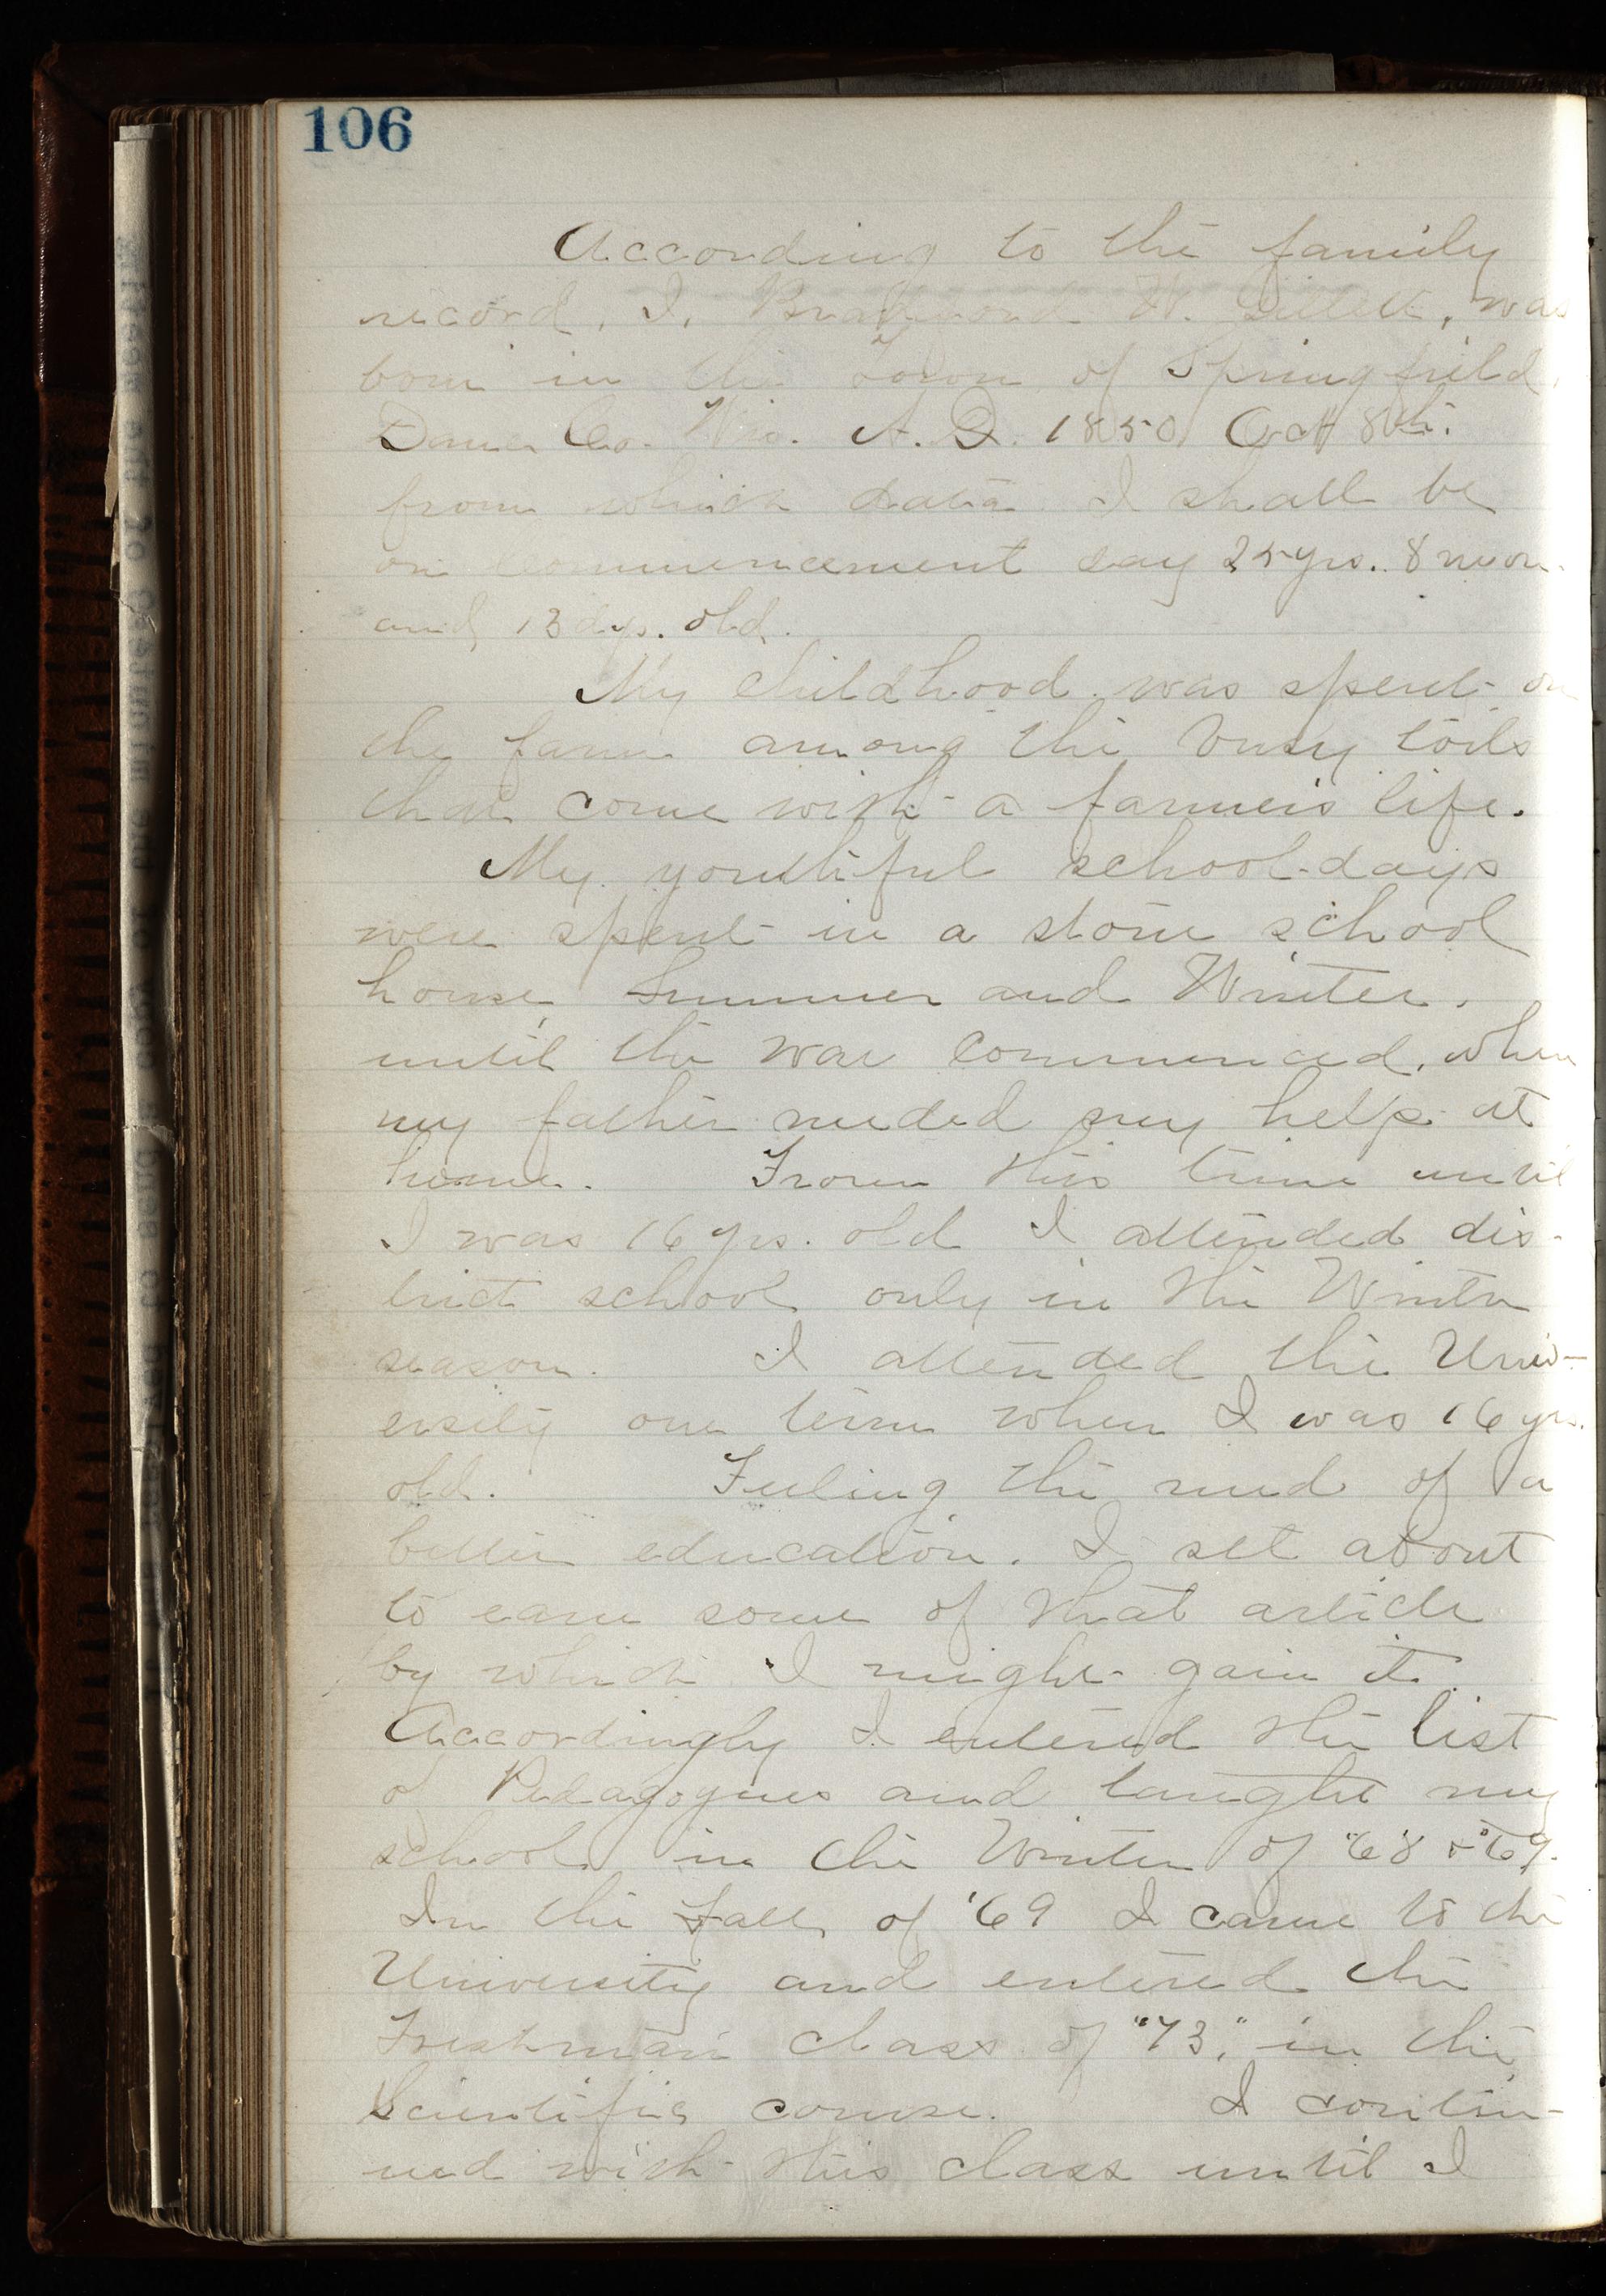 106
According to the family
record, I, W. Gillett, was
born in the town of Springfield,
Dane Co. Wis. A.D. 1850 Oct 8th.
from which data I shall be
on commencement day 25 yrs. 8 mon.
and 13 dys. old.
My childhood was spent on
the farm among the busy toils
that come with a farmer's life.
My youthful school-days
were spent in a stone school
house, Summer and Winter,
until the war commenced, when
my father needed my help at
home. From this time until
I was 16 yrs. old I attended dis-
trict school only in the Winter
season. I attended the Univ-
ersity one term when I was 16 yrs.
old. Feeling the need of a
better education, I set about
to earn some of that article
by which I might gain it.
Accordingly I entered the list
of Pedagogues and taught my
school in the Winter of '68 & '69.
In the Fall of '69 I came to the
University and entered the
Freshman class of "73," in the
Scientific course. I contin-
ued with this class until I